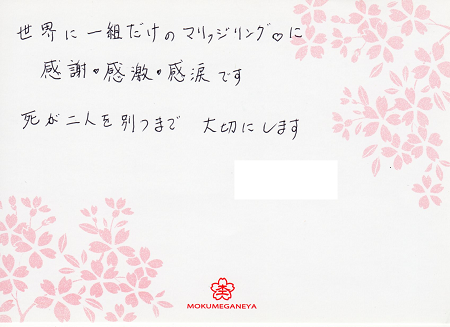 世界に一組だけのマリッジリング♡に
感謝・感激・感涙です
死が二人を別つまで 大切にします
MOKUMEGANEYA